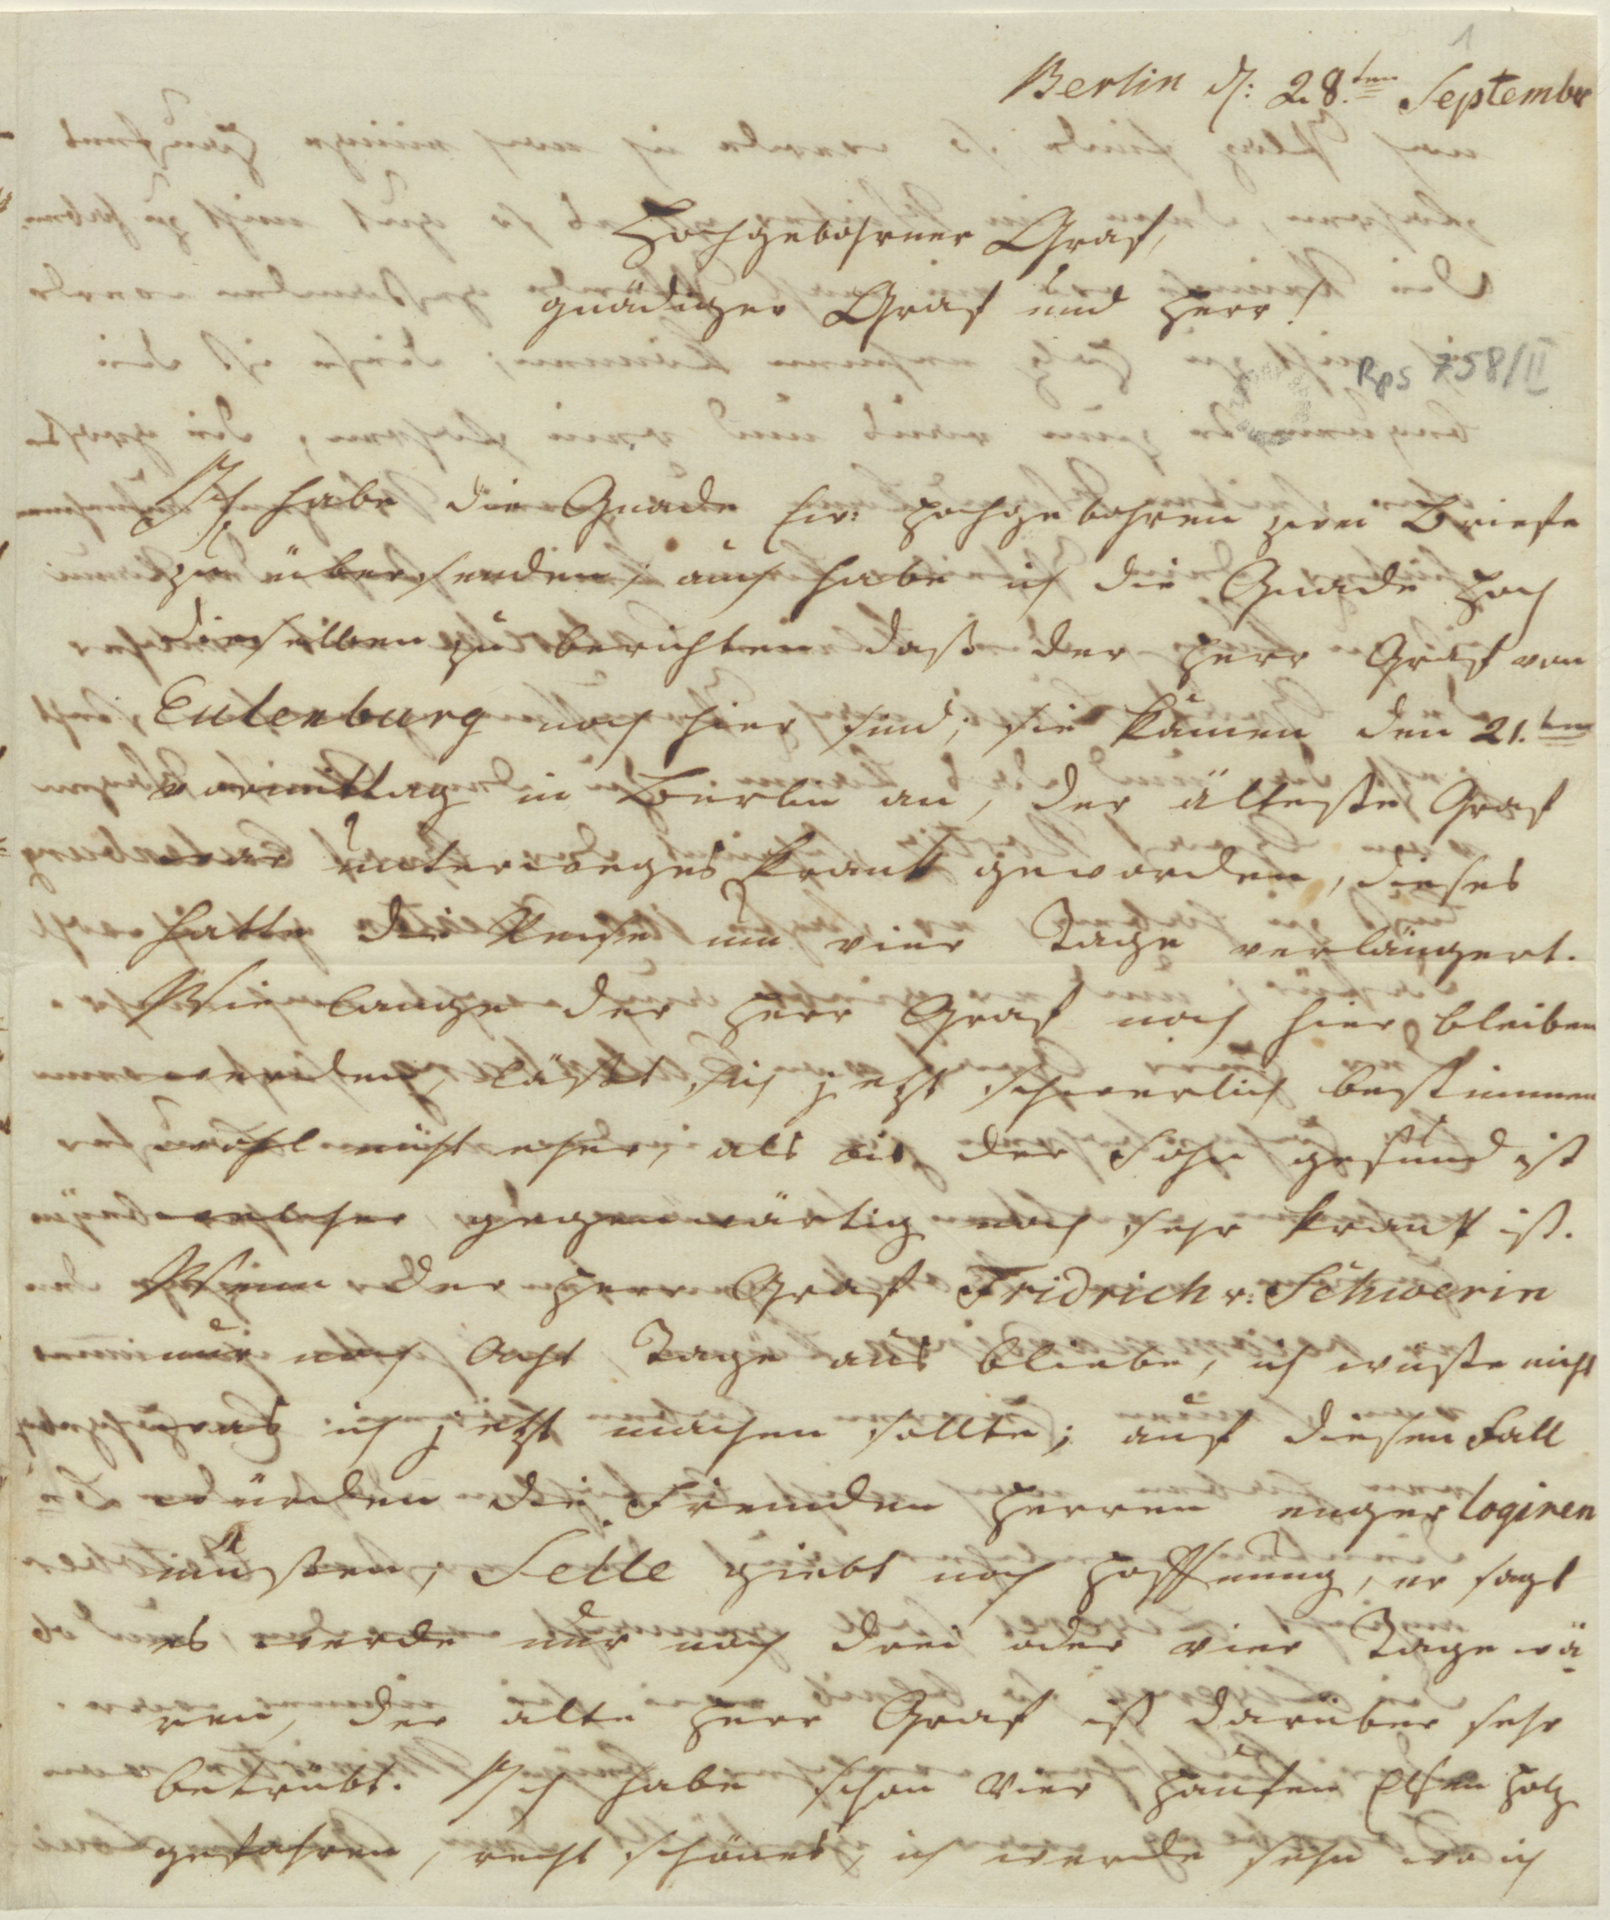 1
Berlin d: 28.ten September
Hochgebohrner Graf,
gnädiger Graf und Herr!
Rps 758/II
Ich habe die Gnade Ew: Hochgebohren zwei Briefe
zu übersenden; auch habe ich die Gnade Hoch
dieselben zu berichten daß der Herr Graf von
Eulenburg noch hier sind; sie kamen den 21.ten
vormittag in Berlin an, der älteste Graf
war unterweges krank geworden, dieses
hatte die Reise um vier Tage verlängert.
Wie lange der Herr Graf noch hier bleiben
werden, läßt sich jetzt schwerlich bestimmen
wohl nicht eher, als bis der Sohn gesund ist
welcher gegenwärtig noch sehr krank ist.
Wenn der Herr Graf Fridrich v: Schwerin
nur noch acht Tage aus bliebe, ich wüste nicht
was ich jetzt machen sollte; auf diesen Fall
würden die Fremden Herren enger logiren
müßen, Selle giebt noch Hoffnung, er sagt
es werde nur noch drei oder vier Tage wä
ren, der alte Herr Graf ist darüber sehr
betrübt. Ich habe schon vier Haufen Elsen Holz
gefahren, recht schönes, ich werde sehn wo ich